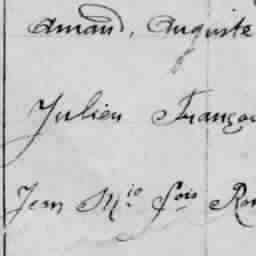 Amand, Auguste
Julien Françoi
Jean Mie fois Ro